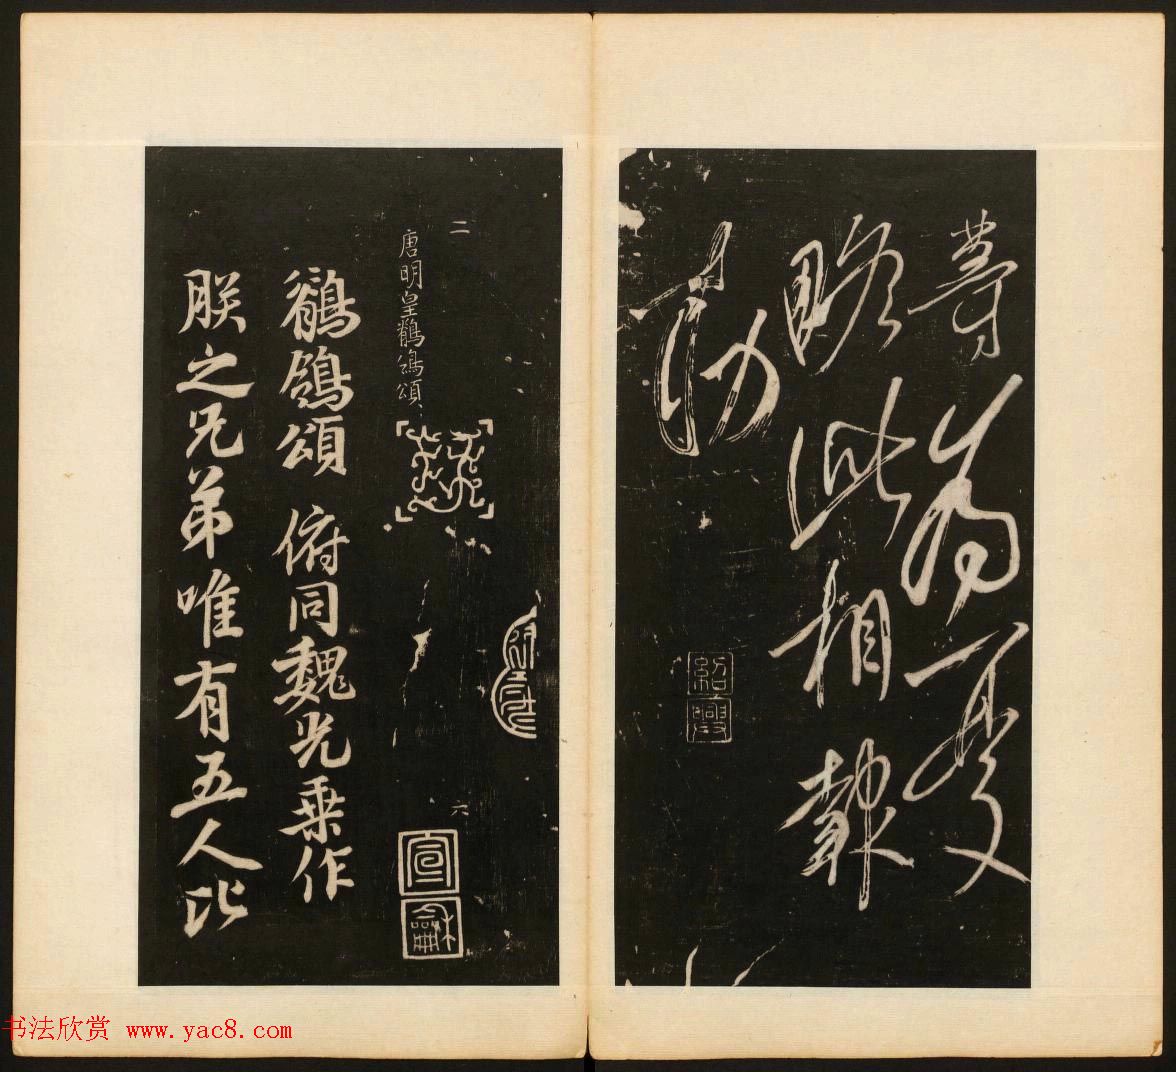 此相報
紹興
二
六
唐明皇鶺鴒頌
宣龢
鶺鴒頌 俯同魏光乘作
朕之兄弟唯有五人比
书法欣赏 www.yac8.com